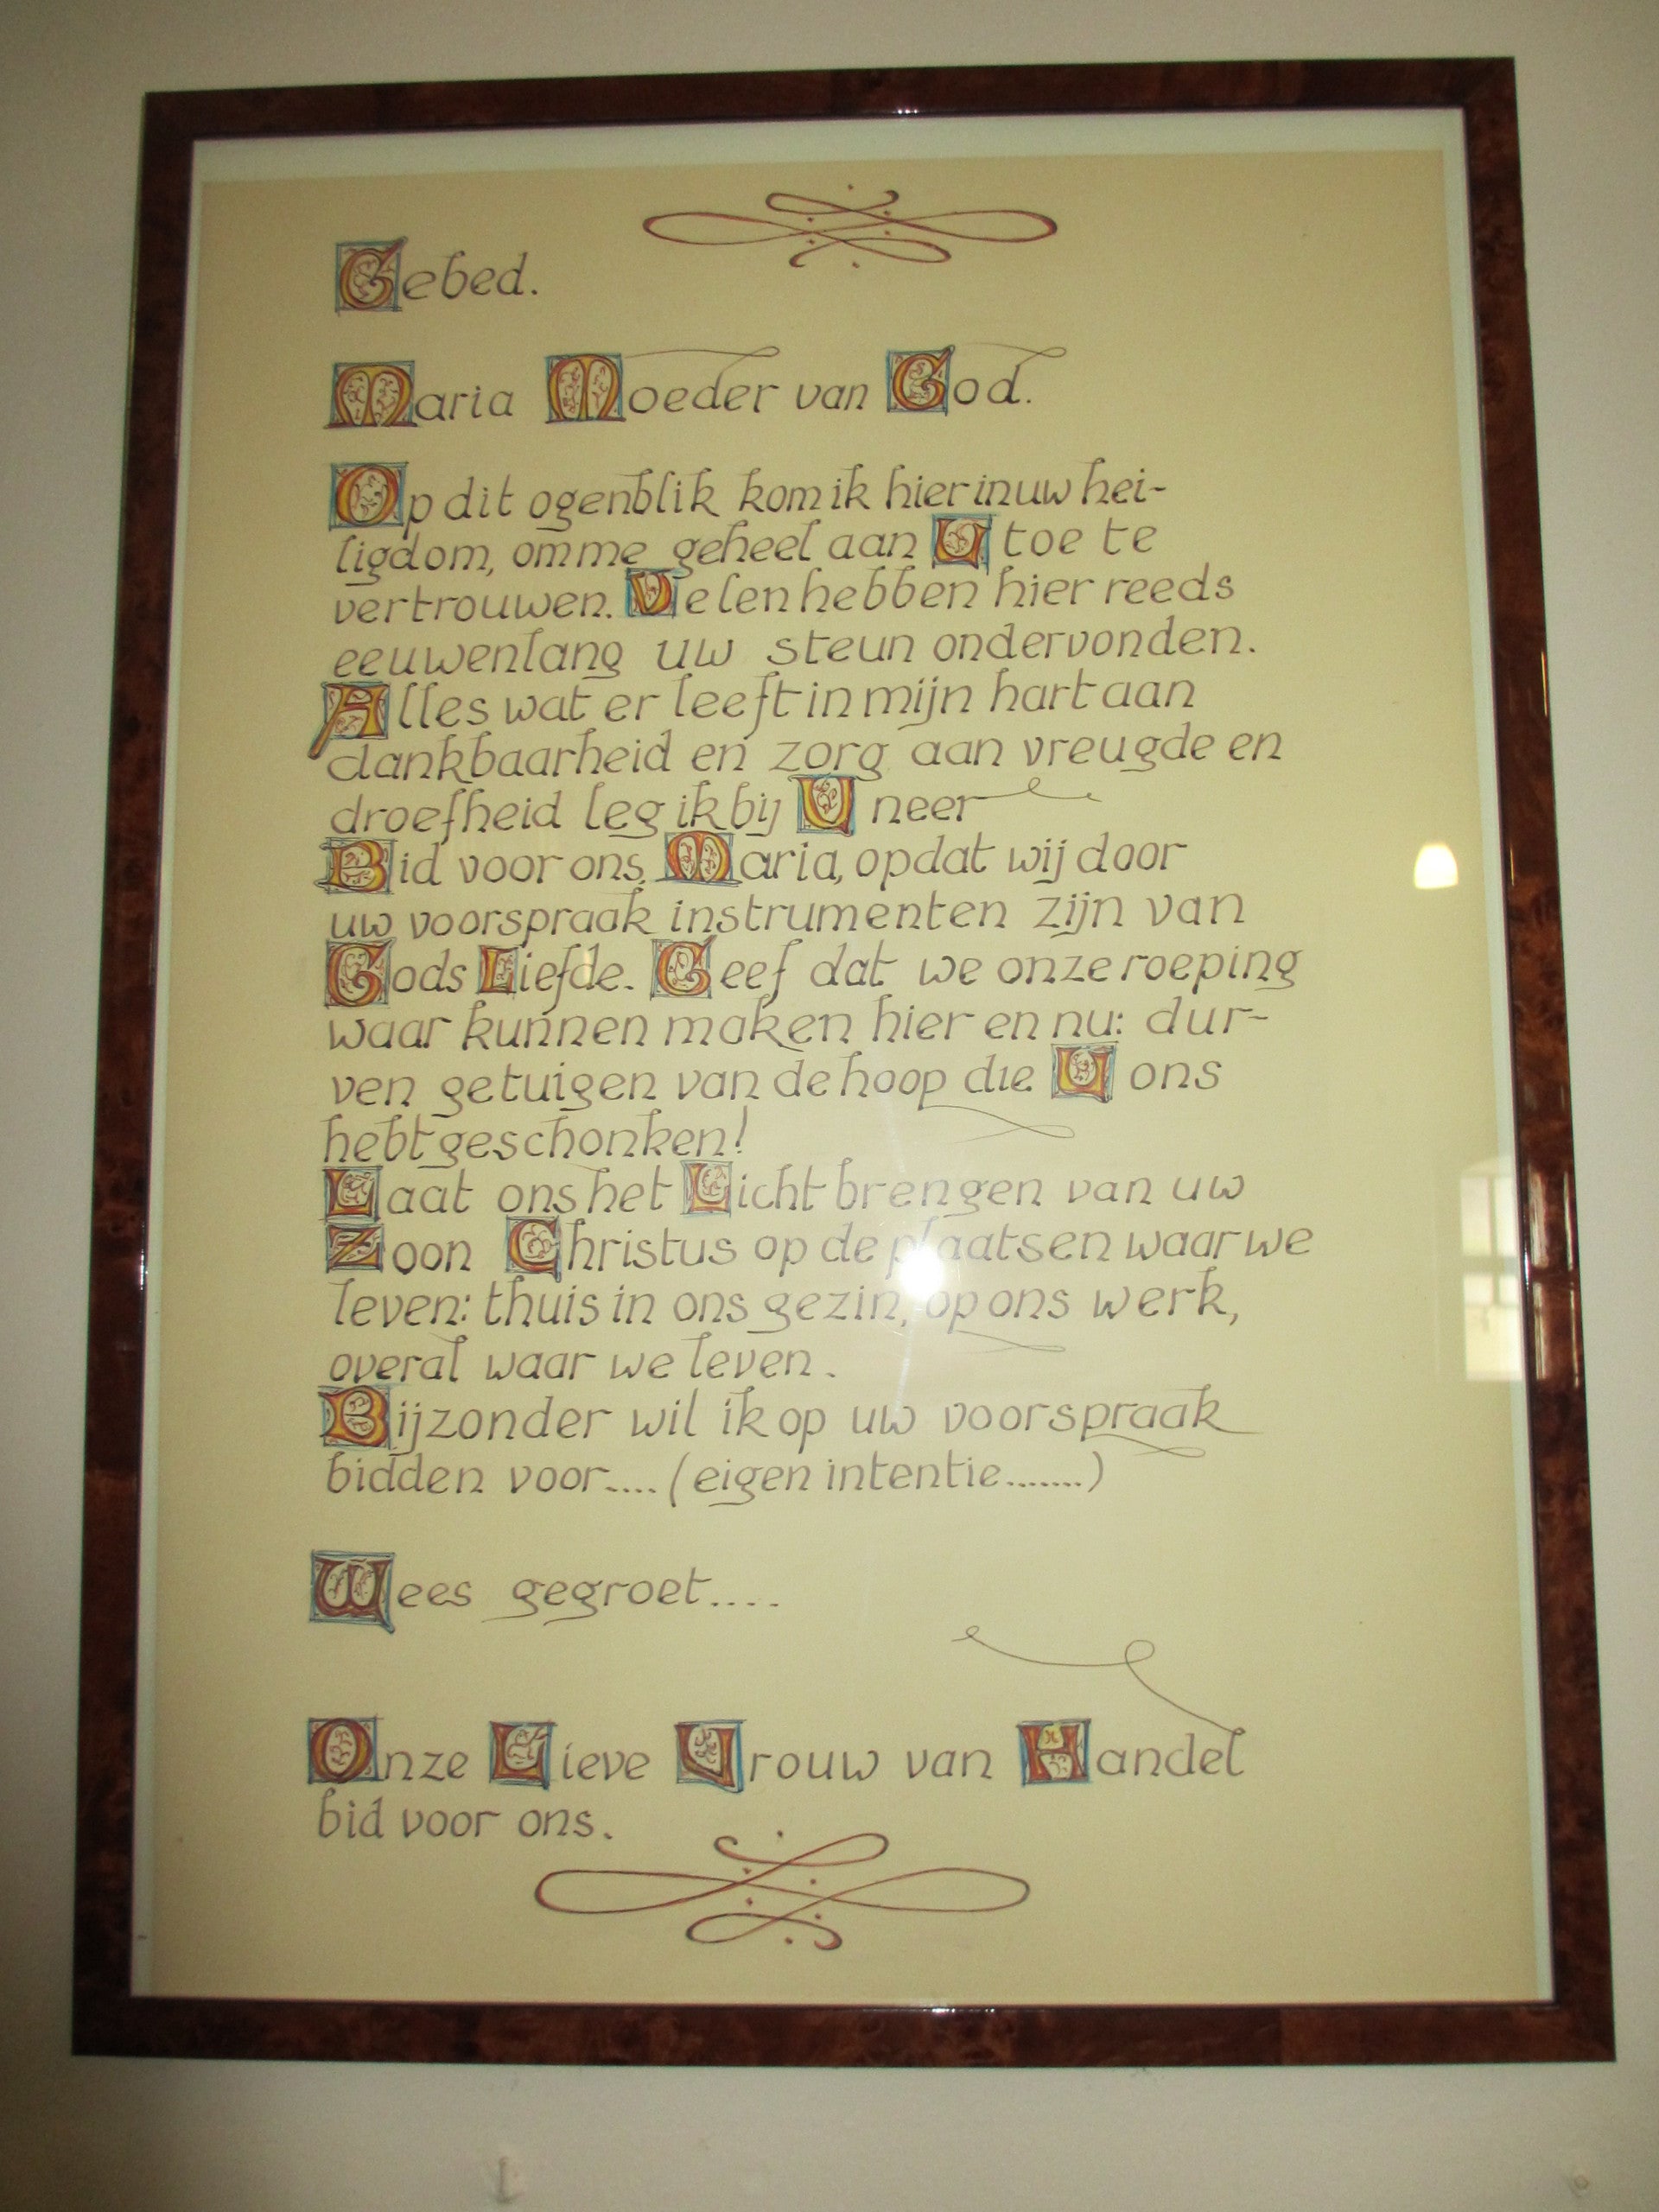 Gebed.
Maria Moeder van God.
Op dit ogenblik kom ik hier in uw hei-
ligdom, om me geheel aan U toe te
vertrouwen. Velen hebben hier reeds
eeuwenlang uw steun ondervonden.
Alles wat er leeft in mijn hart aan
dankbaarheid en zorg aan vreugde en
droefheid leg ik bij U neer
Bid voor ons. Maria, opdat wij door
uw voorspraak instrumenten zijn van
Gods Liefde. Geef dat we onze roeping
waar kunnen maken hier en nu: dur-
ven getuigen van de hoop die U ons
hebt geschonken!
Laat ons het Licht brengen van uw
Zoon Christus op de plaatsen waar we
leven: thuis in ons gezin, op ons werk,
overal waar we leven.
Bijzonder wil ik op uw voorspraak
bidden voor.... (eigen intentie.......)
Wees gegroet....
Onze Lieve Vrouw van Handel
bid voor ons.